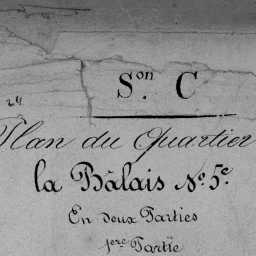 Son. C
24
Plan du Quartier
la Bâlais No. 5e.
En deux Parties
1ere Partie